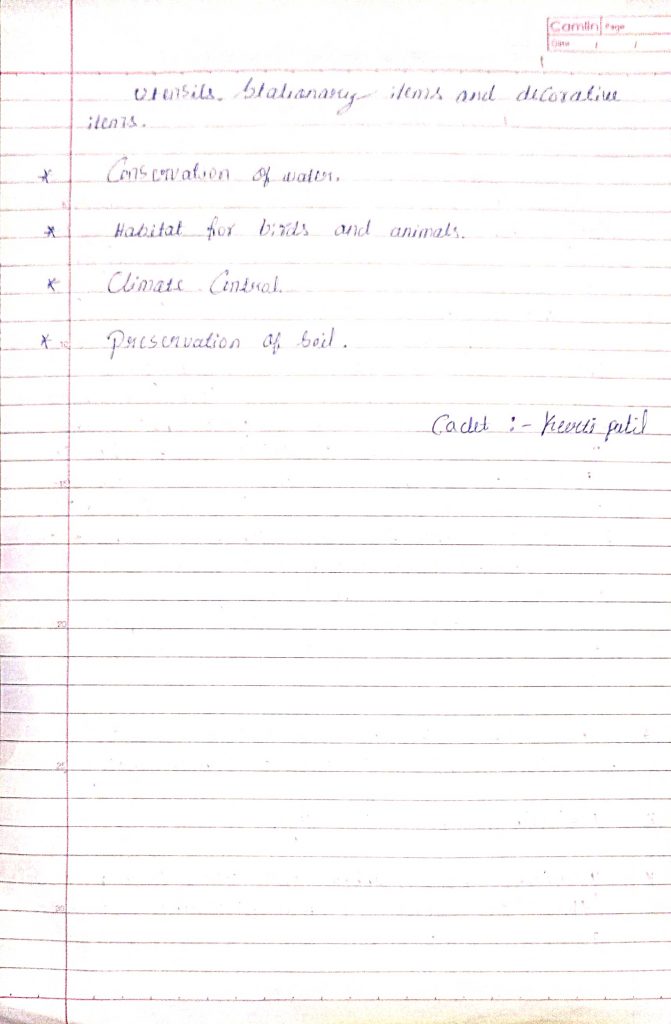 Camlin Page
Date / /
utensils. Stationary items and decorative
items.
* Conservation of water.
5
* Habitat for birds and animals.
* Climate Control.
* 10 Preservation of Soil.
Cadet :- patil
15
20
25
30